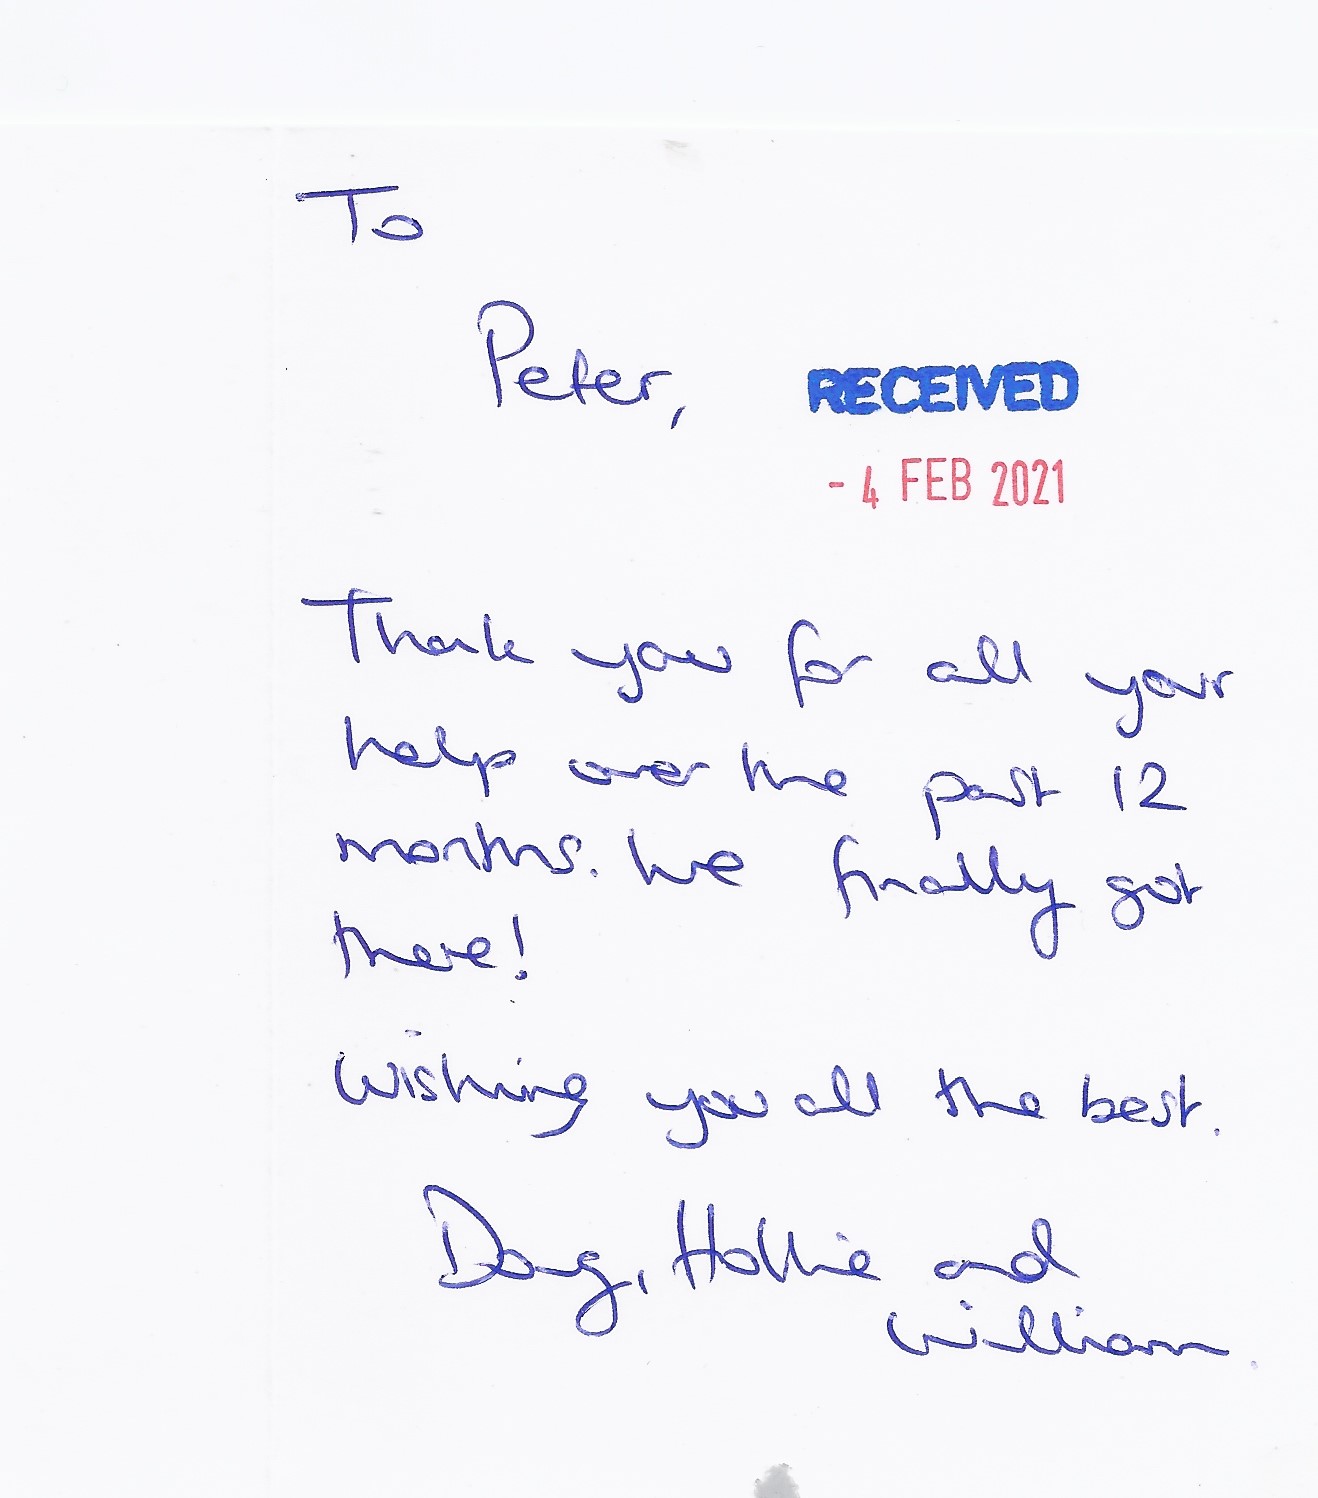 To
Peter,
RECEIVED
- 4 FEB 2021
Thank you for all your
help over the past 12
months. We finally got
there!
Wishing you all the best.
Doug, Hollie and
William.